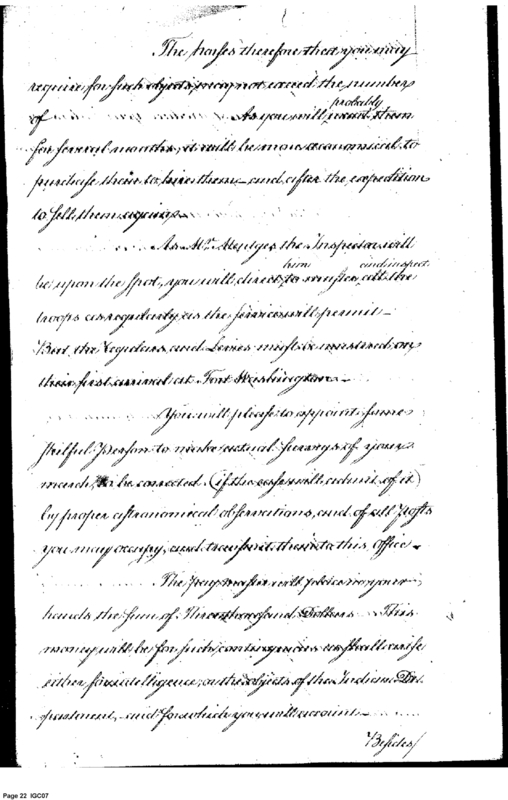 The horses therefore that you may
require for such objects, may not exceed the number
of As you will probably want them
for several months, it will be more economical to
purchase than to hire them — and after the expedition
to sell them again —
As Mr. Mentges the Inspector will
be upon the spot, you will direct him to muster and inspect all the
troops as regularly as the service will permit —
But the regulars and Levies must be mustered on
their first arrival at Fort Washington —
You will please to appoint some
skilful Person to make actual surveys of your
march, to be corrected (if the case will admit of it)
by proper astronomical observations, and of all posts
you may occupy, and transmit them to this office —
The paymaster will place in your
hands the sum of thousand Dollars This
money will be for such contingencies as shall arise
either for intelligence, or the objects of the Indian De-
partment, and for which you will account —
Besides/
Page 22 IGC07